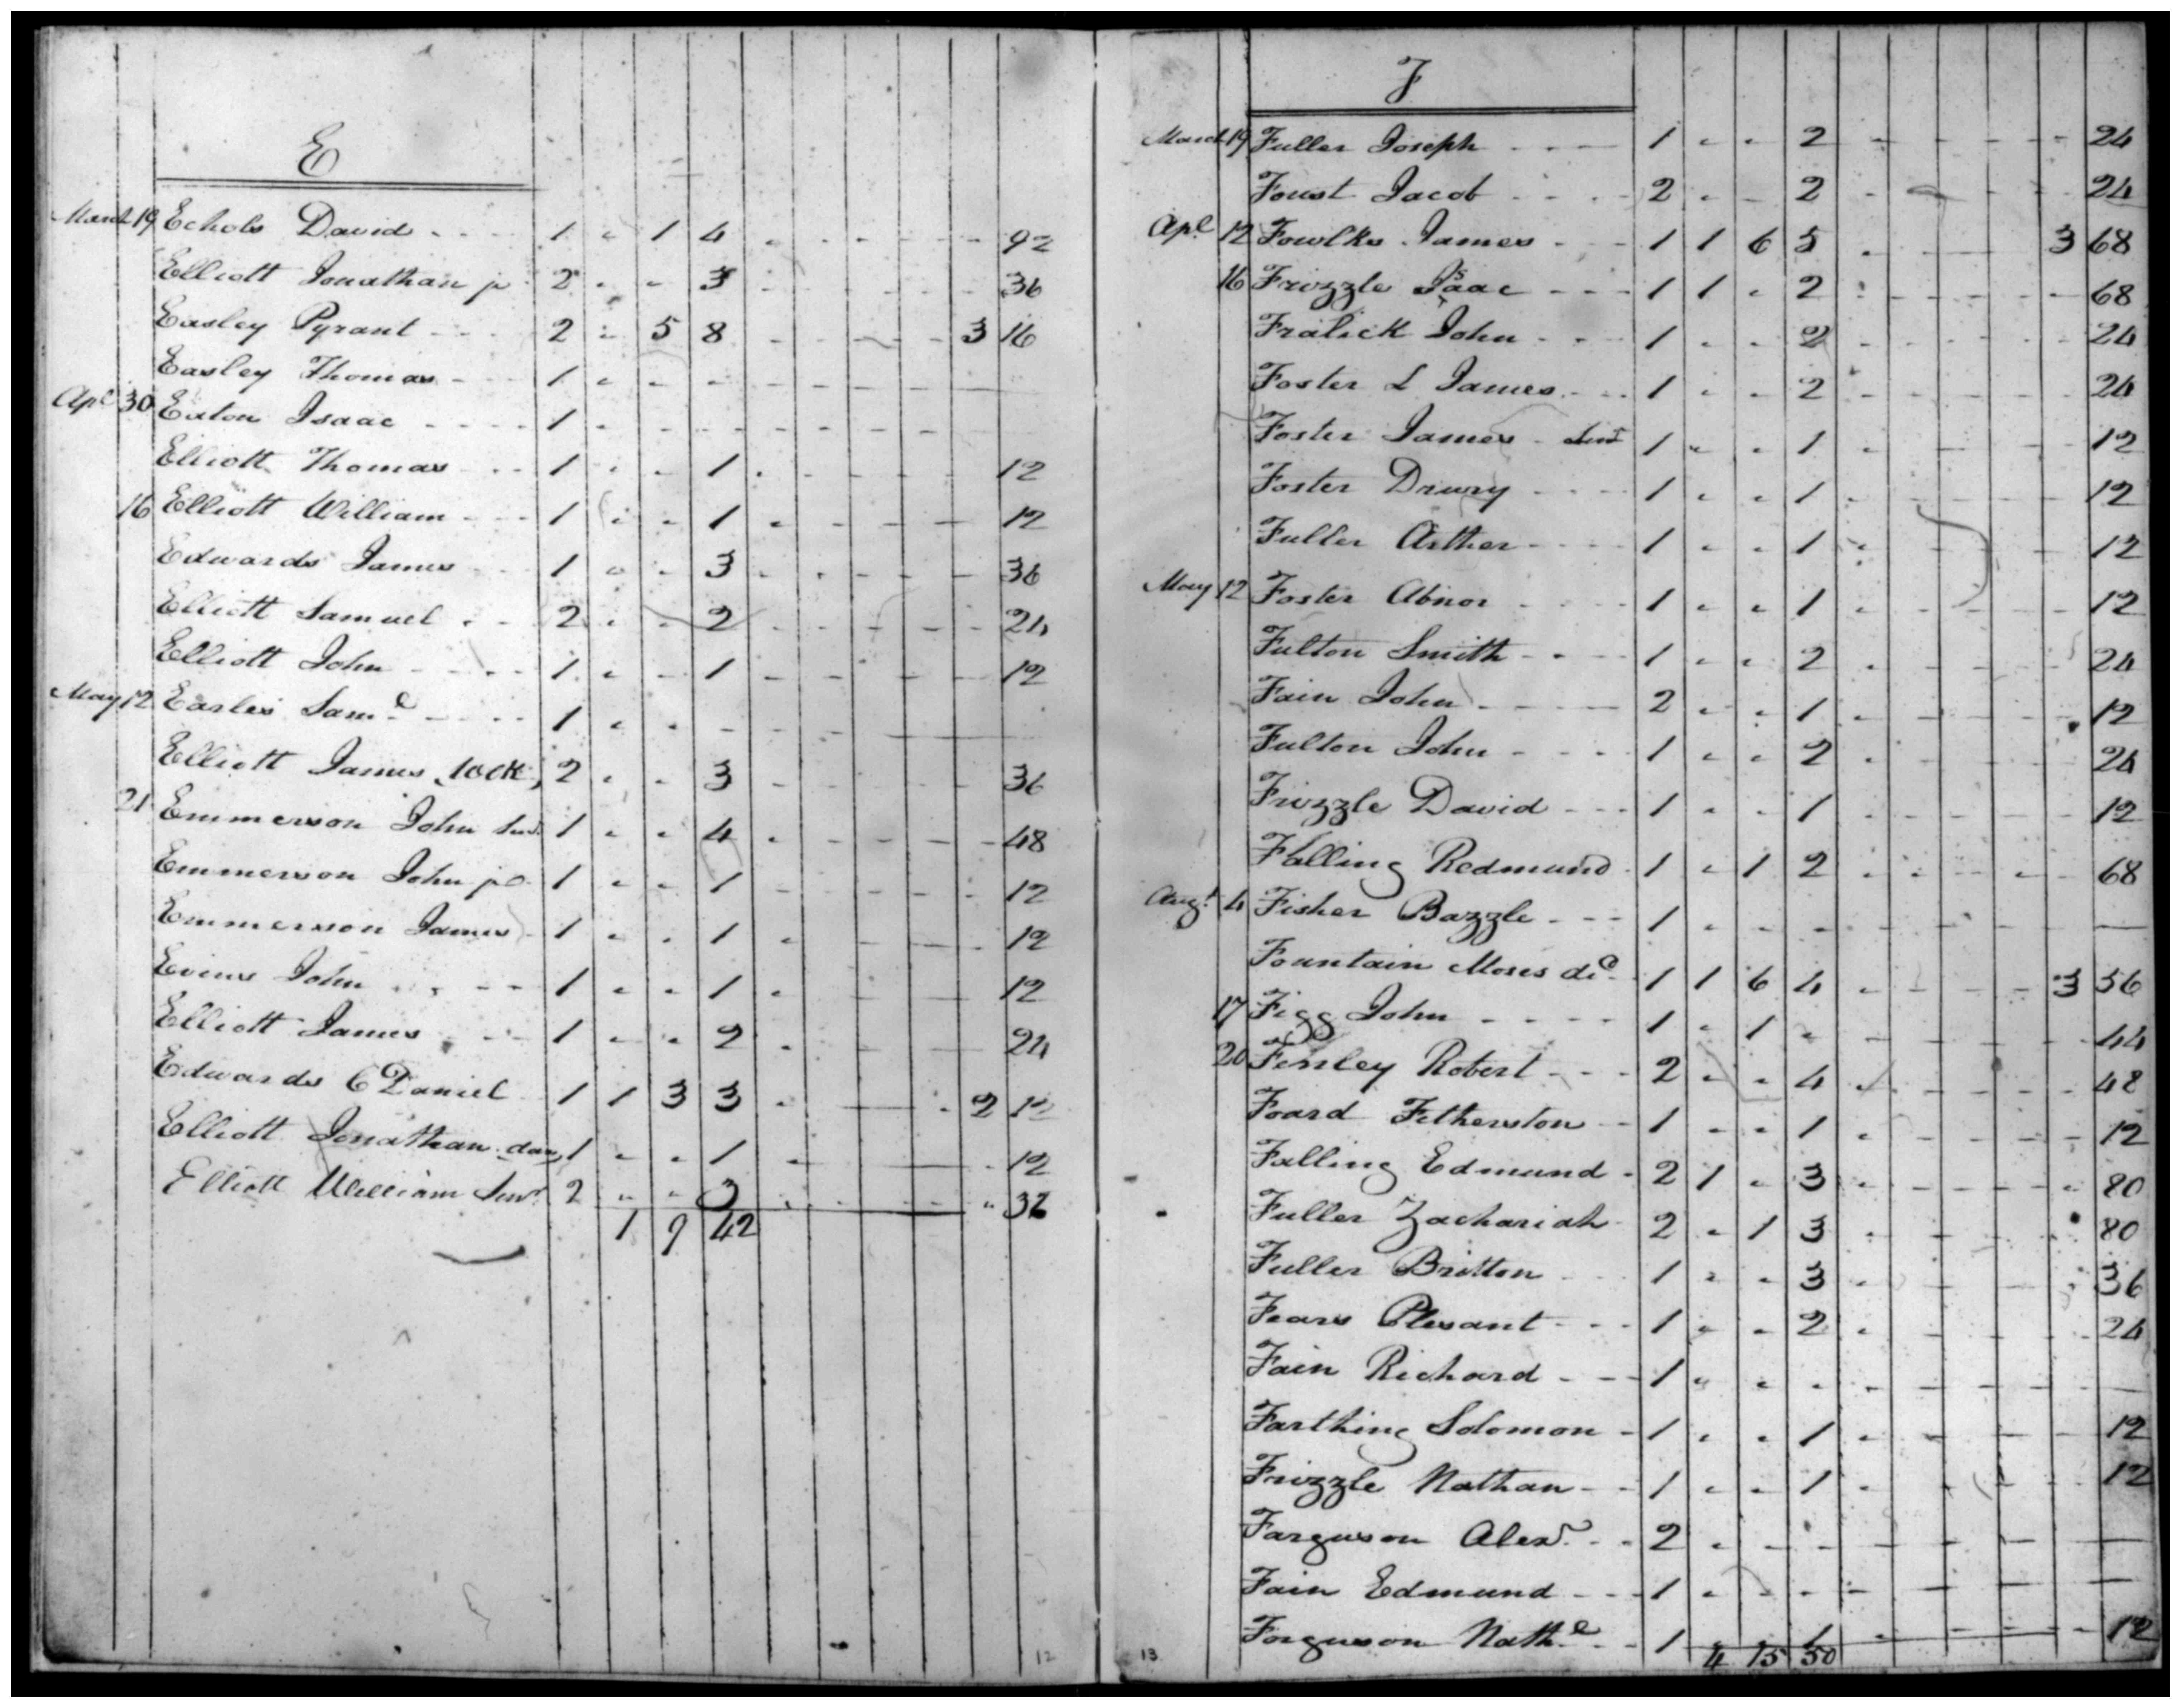 E
March 19 Echols David 1 1 4 92
Elliott Jonathan jr 2 3 36
Easley Pyrant 2 5 8 3 16
Easley Thomas 1
Apl 30 Eaton Isaac 1
Elliott Thomas 1 1 12
16 Elliott William 1 1 12
Edwards James 1 3 36
Elliott Samuel 2 2 24
Elliott John 1 1 12
May 12 Earles Saml 1
Elliott James 2 3 36
21 Emmerson John Senr 1 4 48
Emmerson John jr 1 1 12
Emmerson James 1 1 12
Evins John 1 1 12
Elliott James 1 2 24
Edwards C Daniel 1 1 3 3 2 12
Elliott Jonathan dan 1 1 12
Elliott William Senr 2 3 36
1 9 42
12
F
March 19 Fuller Joseph 1 2 24
Foust Jacob 2 2 24
Apl 12 Fowlkes James 1 1 6 5 3 68
16 Frizzle Isaac 1 1 2 68
Fralick John 1 2 24
Foster L James 1 2 24
Foster James Senr 1 1 12
Foster Drury 1 1 12
Fuller Arther 1 1 12
May 12 Foster Abnor 1 1 12
Fulton Smith 1 2 24
Fain John 2 1 12
Fulton John 1 2 24
Frizzle David 1 1 12
Falling Redmund 1 1 2 68
Augt 4 Fisher Bazzle 1
Fountain Moses 1 1 6 4 3 56
17 Figg John 1 1 44
20 Finley Robert 2 4 48
Foard Fetherston 1 1 12
Falling Edmund 2 1 3 80
Fuller Zachariah 2 1 3 80
Fuller Britton 1 3 36
Fears Plesant 1 2 24
Fain Richard 1
Farthing Solomon 1 1 12
Frizzle Nathan 1 1 12
Farguson Alexr 2
Fain Edmund 1
Forguson Nathl 1 1 12
4 15 50
13